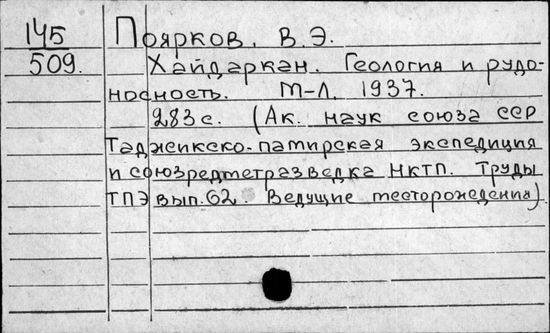 145 Поярков, В.Э.
509. Хайдаркан. Геология и рудо-
носность. М-Л. 1937.
283 с. (Ак. наук союза ССР
Таджикско-памирская экспедиция
и союзредметразведка НКТП. Труды
ТПЭ вып. 62. Ведущие месторождения)